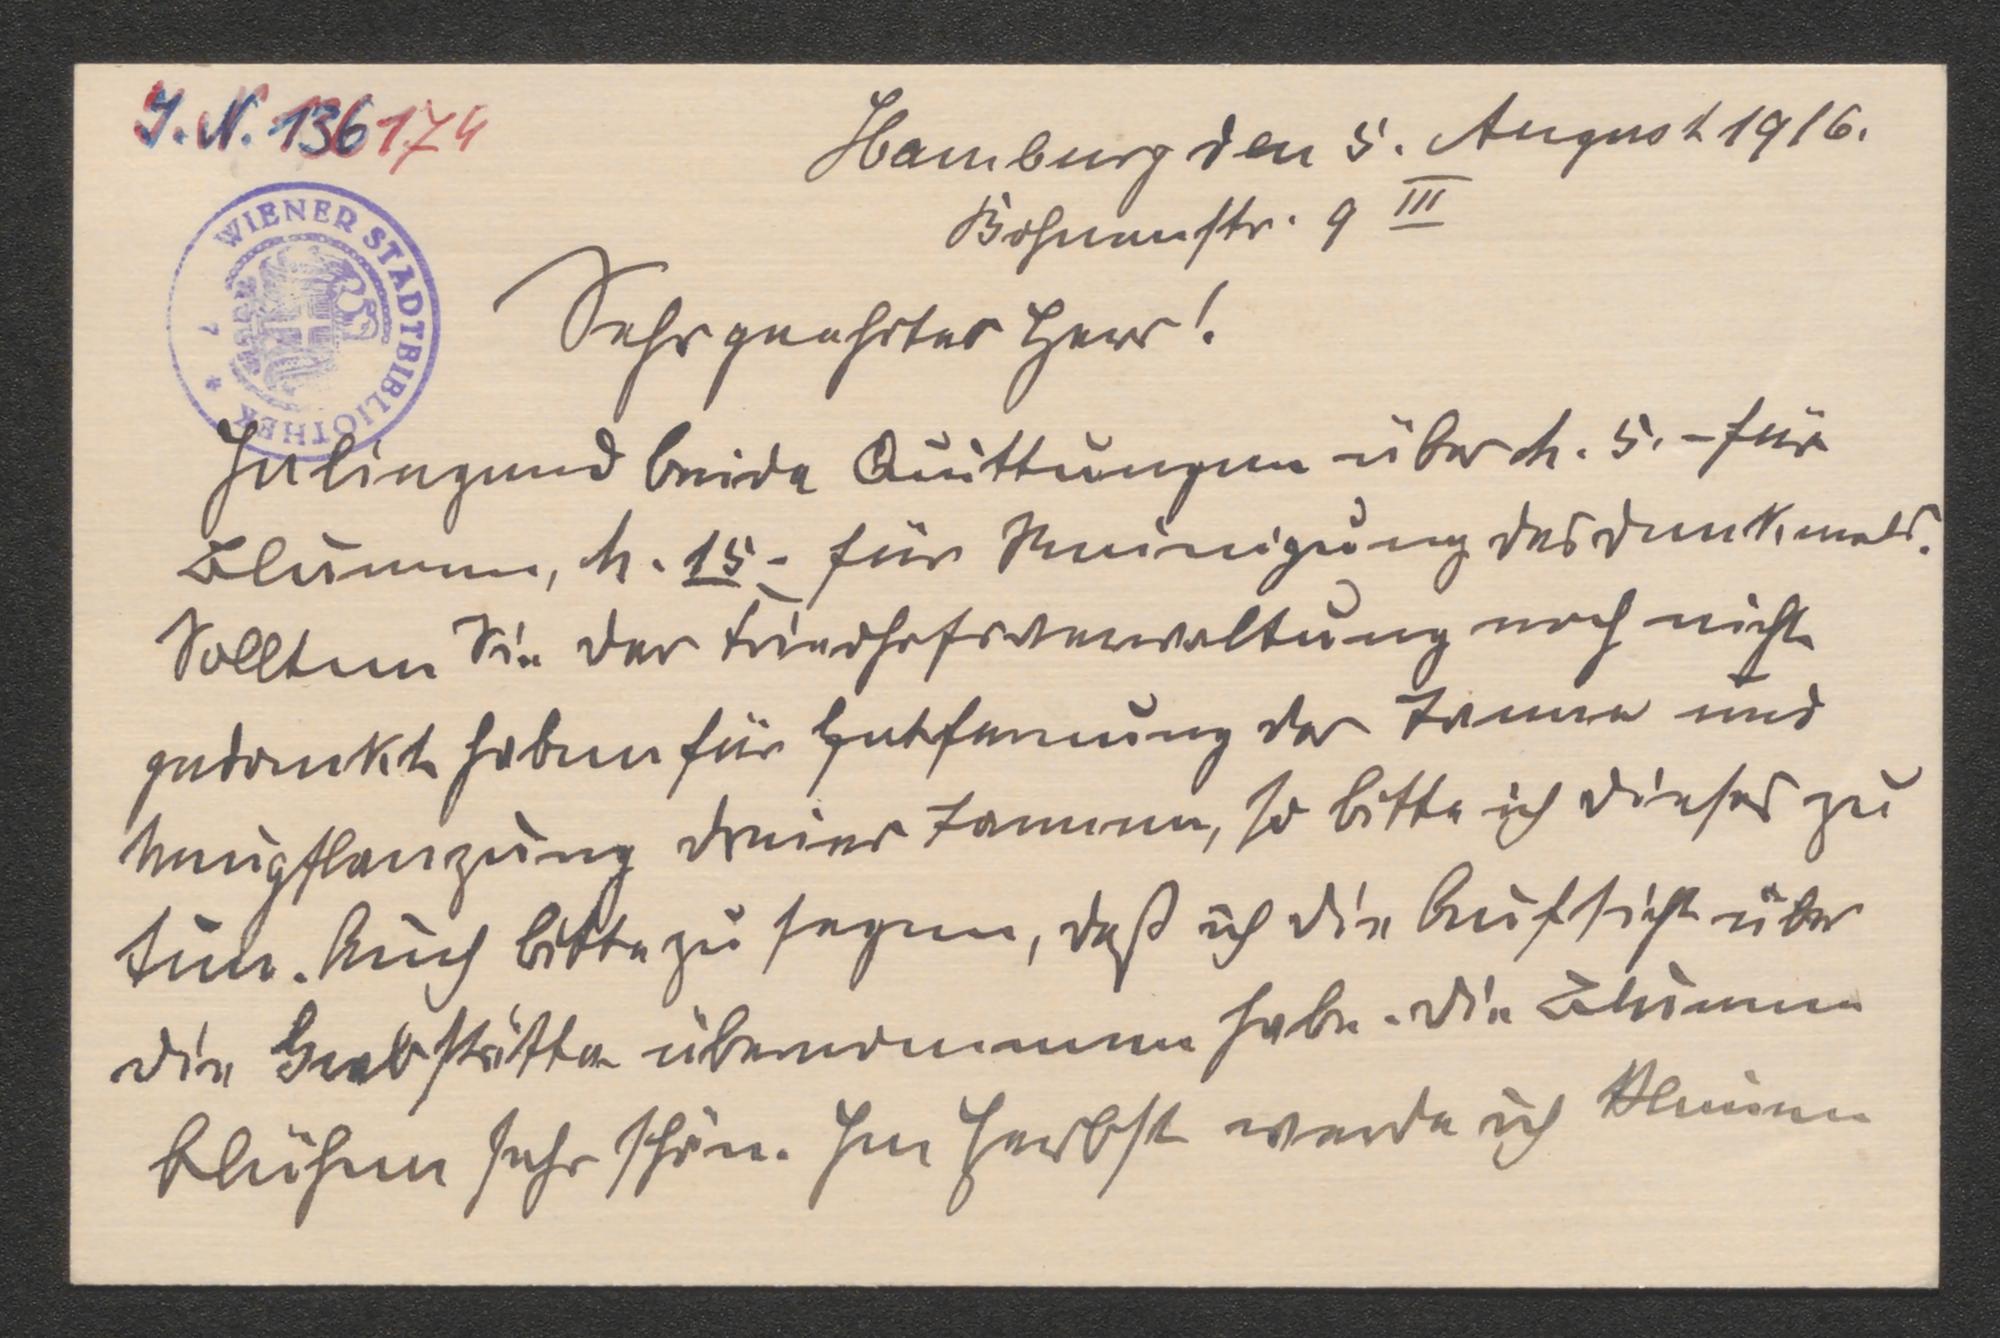 I.N. 136174
WIENER STADTBIBLIOTHEK
Hamburg den 5. August 1916.
Bohnenstr. 9 III
Sehr geehrter Herr!
Inliegend beide Quittungen über M. 5.- für
Blumen, M. 15.- für Reinigung des Denkmals.
Sollten Sie der Friedhofsverwaltung noch nicht
gedankt haben für Entfernung der Tanne und
Neupflanzung dreier Tannen, so bitte ich dieses zu
tun. Auch bitte zu sagen, daß ich die Aufsicht über
die Grabstätte übernommen habe. Die Blumen
blühen sehr schön. Im Herbst werde ich